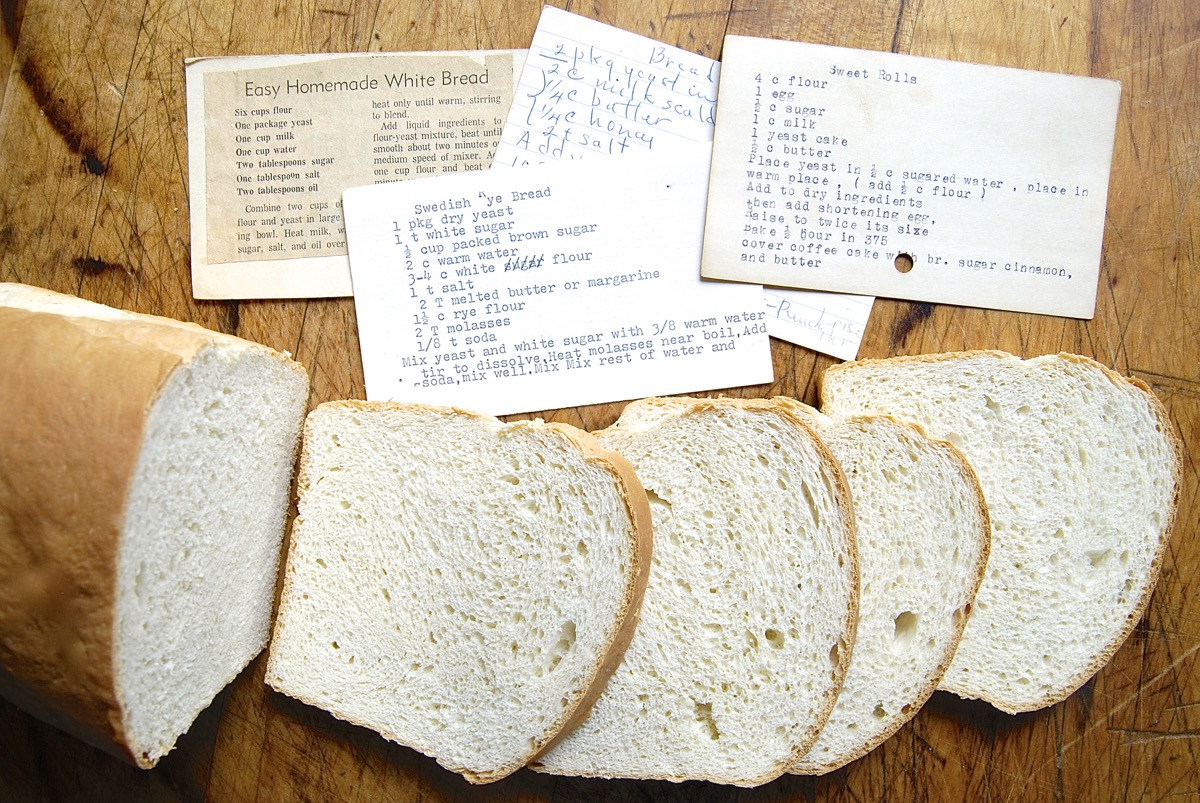 Easy Homemade White Bread
Six cups flour
One package yeast
One cup milk
One cup water
Two tablespoons sugar
One tablespoon salt
Two tablespoons oil
Combine two cups of
flour and yeast in large
ing bowl. Heat milk, w
sugar, salt, and oil over
heat only until warm, stirring
to blend.
Add liquid ingredients to
flour-yeast mixture, beat until
smooth about two minutes o
medium speed of mixer. A
one cup flour and beat
Bread
2 pkg. yeast in
½ c milk scald
¼ c butter
¼ c honey
2 t salt
Add
Swedish ye Bread
1 pkg dry yeast
1 t white sugar
½ cup packed brown sugar
2 c warm water
3-4 c white flour
1 t salt
2 T melted butter or margarine
1½ c rye flour
2 T molasses
1/8 t soda
Mix yeast and white sugar with 3/8 warm water
tir to dissolve,Heat molasses near boil,Add
soda,mix well.Mix Mix rest of water and
Sweet Rolls
4 c flour
1 egg
½ c sugar
1 c milk
1 yeast cake
½ c butter
Place yeast in ½ c sugared water , place in
warm place , ( add ½ c flour )
Add to dry ingredients
then add shortening egg,
Raise to twice its sixe
Bake ½ hour in 375
cover coffee cake w h br. sugar cinnamon,
and butter